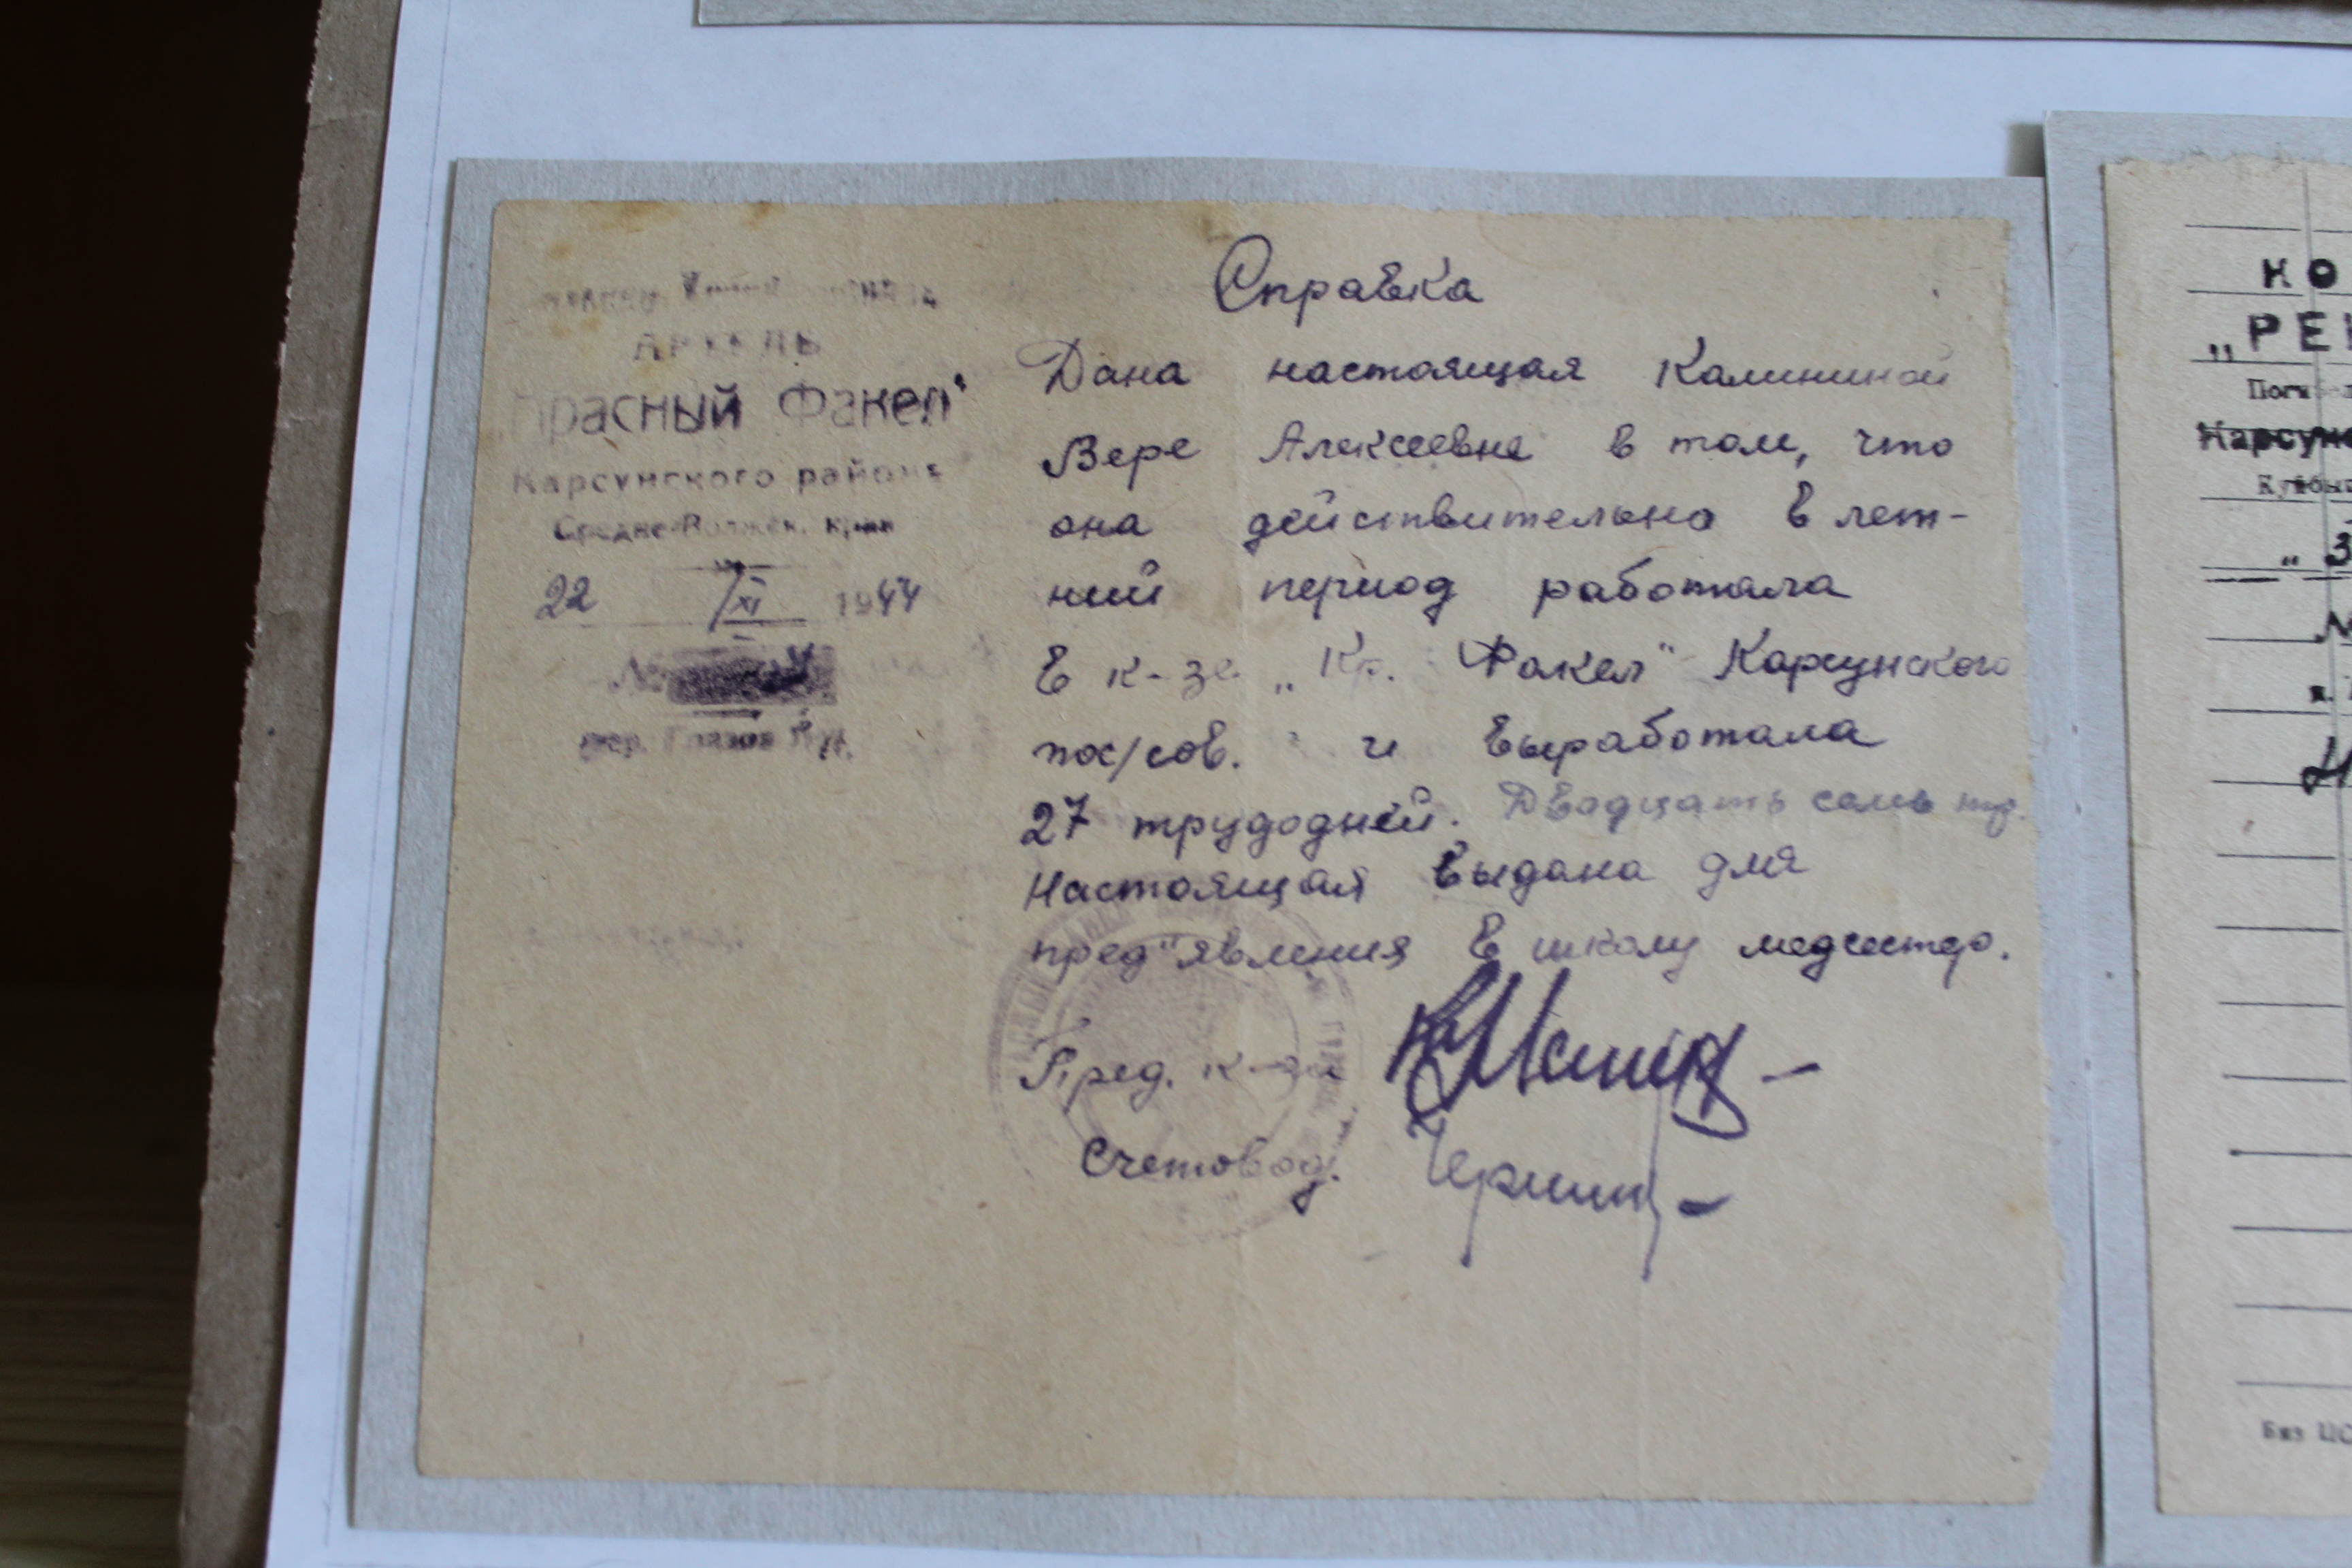 Справка
АРТЕЛЬ
"Красный Факел"
Карсунского района
Средне-Волжск. края
22 /XI 1944
№
Дана настоящая Калининой
Вере Алексеевне в том, что
она действительно в лет-
ний период работала
в к-зе „Кр. Факел" Карсунского
пос/сов. и выработала
27 трудодней. Двадцать семь тр.
Настоящая выдана для
пред"явления в школу медсестер.
Пред. к-за
Счетовод.
НО
„РЕ
Карсунс
„З